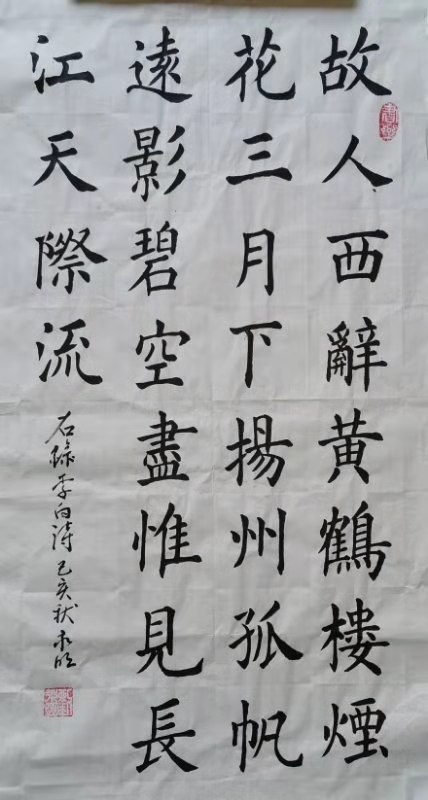 故人西辭黃鶴樓煙
花三月下揚州孤帆
遠影碧空盡惟見長
江天際流
右錄李白詩己亥秋永明